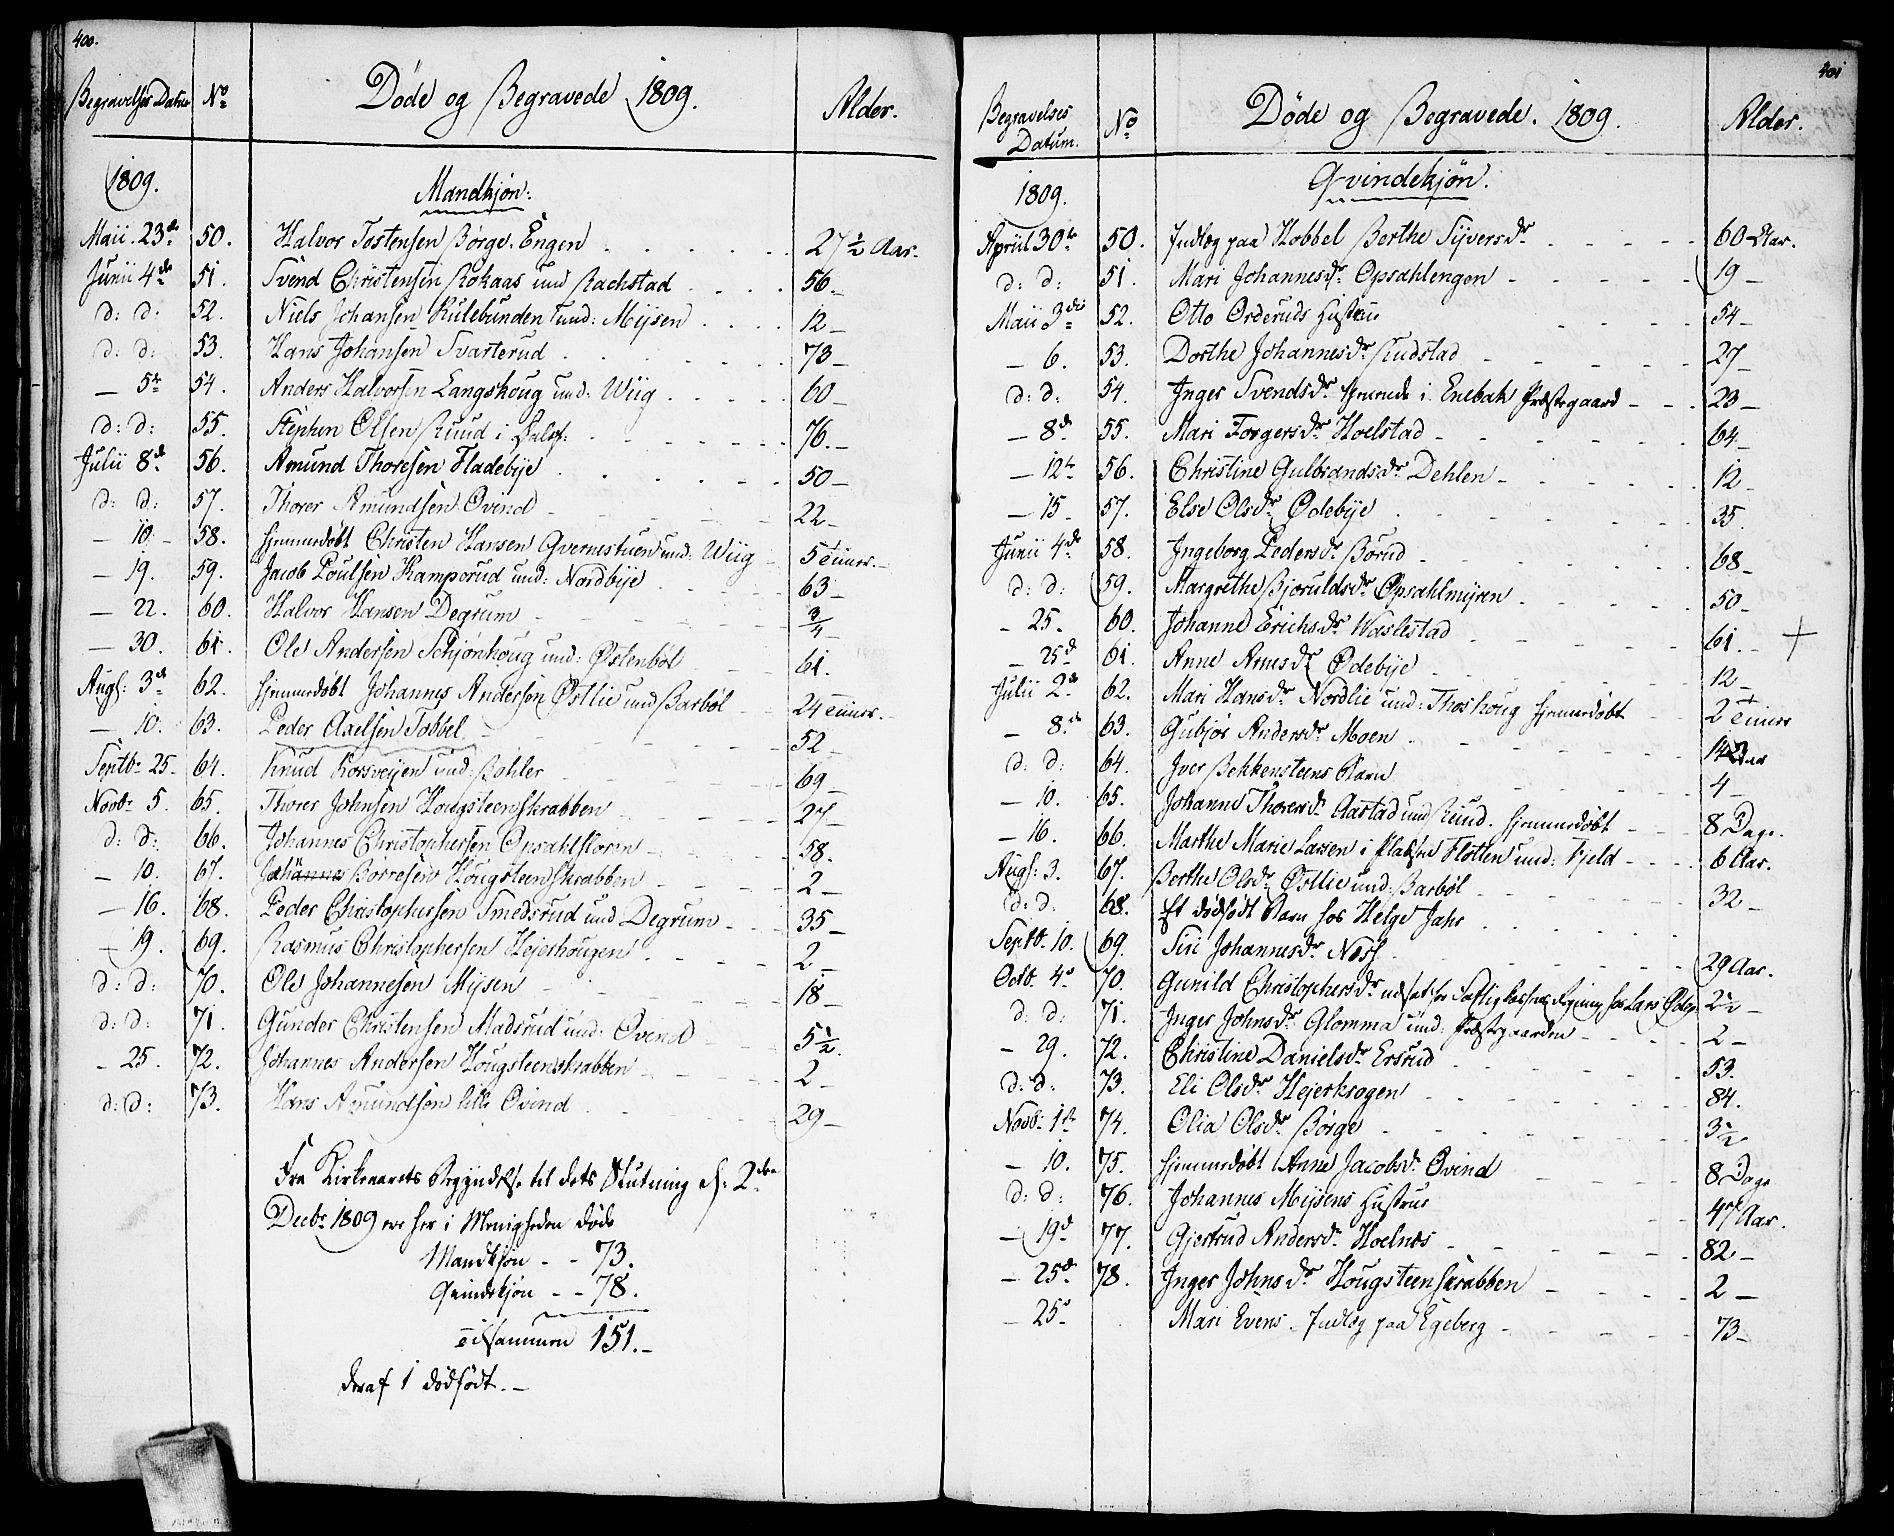 400.
Begravelses Datum No Döde og Begravede 1809. Alder.
1809. Mandkjön:
Maii. 23de 50. Halvor Tostensen Börge-Engen 27 1/2 Aar.
Junii 4de 51. Svend Christensen Rökaas und Rachstad 56-
d: d: 52. Niels Johansen Kulebunden und: Mijsen 12-
d: d: 53. Hans Johansen Svarterud 73-
- 5te 54. Anders Halvorsen Langshoug und: Wiig 60-
d: d: 55. Stephen Olsen Ruud i 76.-
Julii 8de 56. Amund Thoresen Fladebije 50-
d: d: 57. Thorer Amundsen Ovind 22-
- 10. - 58. hjemmedöbt Christen Hansen Qvernestuen und: Wiig 5 Timer.-
- 19. 59. Jacob Poulsen Kamperud und: Nordbije 63-
- 22. 60. Halvor Hansen Degrum 3/4-
- 30. 61. Ole Andersen Schjönhoug und: Østenböl 61.
Augs: 3de 62. hjemmedöbt Johannes Andersen Østlie und Barböl 24 Timer.-
- 10. 63. Peder Axelsen Tobbel 52-
Septbr 25. 64. Knud Korsveijen und: Bahler 69-
Novbr 5. 65. Thorer Johnsen Hougsteenskrabben 27-
d: d: 66. Johannes Christophersen Opsahlstoren 58.
- 10. 67. Johannes Börresen Hougsteenskrabben 2-
- 16. 68. Peder Christophersen Smedsrud und Degrum 35-
- 19. 69. Rasmus Christophersen Hejerkrogen 2-
d: d: 70. Ole Johannesen Mijsen 18-
d: d: 71. Gunder Christensen Madsrud und: Ovind 5 1/2.
- 25. 72. Johannes Andersen Hougsteenskrabben 2-
d: d: 73. Hans Amundsen lille Ovind 29-
Fra Kirkeaarets Begyndelse til dets Slutning d: 2den
Decbr 1809 ere her i Menigheden döde
Mandkjön - - 73.
Qvindekjön - - 78.
Tilsammen 151.-
deraf 1 dödfödt.-
401
Begravelses Datum. No Döde og Begravede. 1809. Alder.
1809. Qvindekjön.
Apriil 30te 50. Indlæg paa Hobbel Berthe Sijversdr 60 Aar.
d: d: 51. Mari Johannesdr Opsahlengen 19-
Maii 3die 52. Otto Orderuds Hustrue 54-
- 6. 53. Dorthe Johannesdr Rudstad 27-
d: d: 54. Inger Svendsdr tjenende i Enebak Præstegaard 23-
- 8de 55. Mari Torgersdr Hoelstad 64-
- 12te 56. Christine Gulbrandsdr Dehlen 12-
- 15- 57. Else Olsdr Ødebije 35.
Junii 4de 58. Ingeborg Pedersdr Börud 68-
d: d: 59. Margrethe Björuldsdr Opsahlmijren 50-
- 25. 60. Johanne Erichsdr Waslestad 61.- +
- 25de 61. Anne Arnesdr Ødebije 12-
Julii 2de 62. Mari Hansdr Nordlie und: Thoshoug hjemmedöbt 2 Timer
- 8de 63. Gubjör Andersdr Moen 14 Dage
d: d: 64. Iver Bekkensteens Barn 4-
- 10. 65. Johanne Thoresdr Aastad und Ruud. hjemmedöbt 8 Dage.
- 16. 66. Marthe Marie Larsen i Pladsen Flotten und: Fjeld 6 Aar.
Augs: 3. 67. Berthe Olsdr Østlie und: Barböl 32-
d: d: 68. Et dödfödt Barn hos Helge Jahr
Septb. 10. 69. Siri Johannesdr Næss 29 Aar.
Octb. 4de 70. Gunild Christophersdr udsat for Fattigkassens Regning hos Lars Ødeg: 2 1/2-
d: d: 71. Inger Johnsdr Glomma und: Præstegaarden 2-
- 29. 72. Christine Danielsdr Ersrud 53.
d: d: 73. Eli Olsdr Hejerkrogen 84.
Novb. 1ste 74. Olia Olsdr Börge 3 1/2
- 10. 75. hjemmedöbt Anne Jacobsdr Ovind 8 Dage
d: d: 76. Johannes Mijsens Hustrue 47 Aar.
- 19de 77. Gjertrud Andersdr Hoelnæs 82-
- 25de 78. Inger Johnsdr Hougsteenskrabben 2-
- 25de Mari Evens- Indlæg paa Egeberg 73-